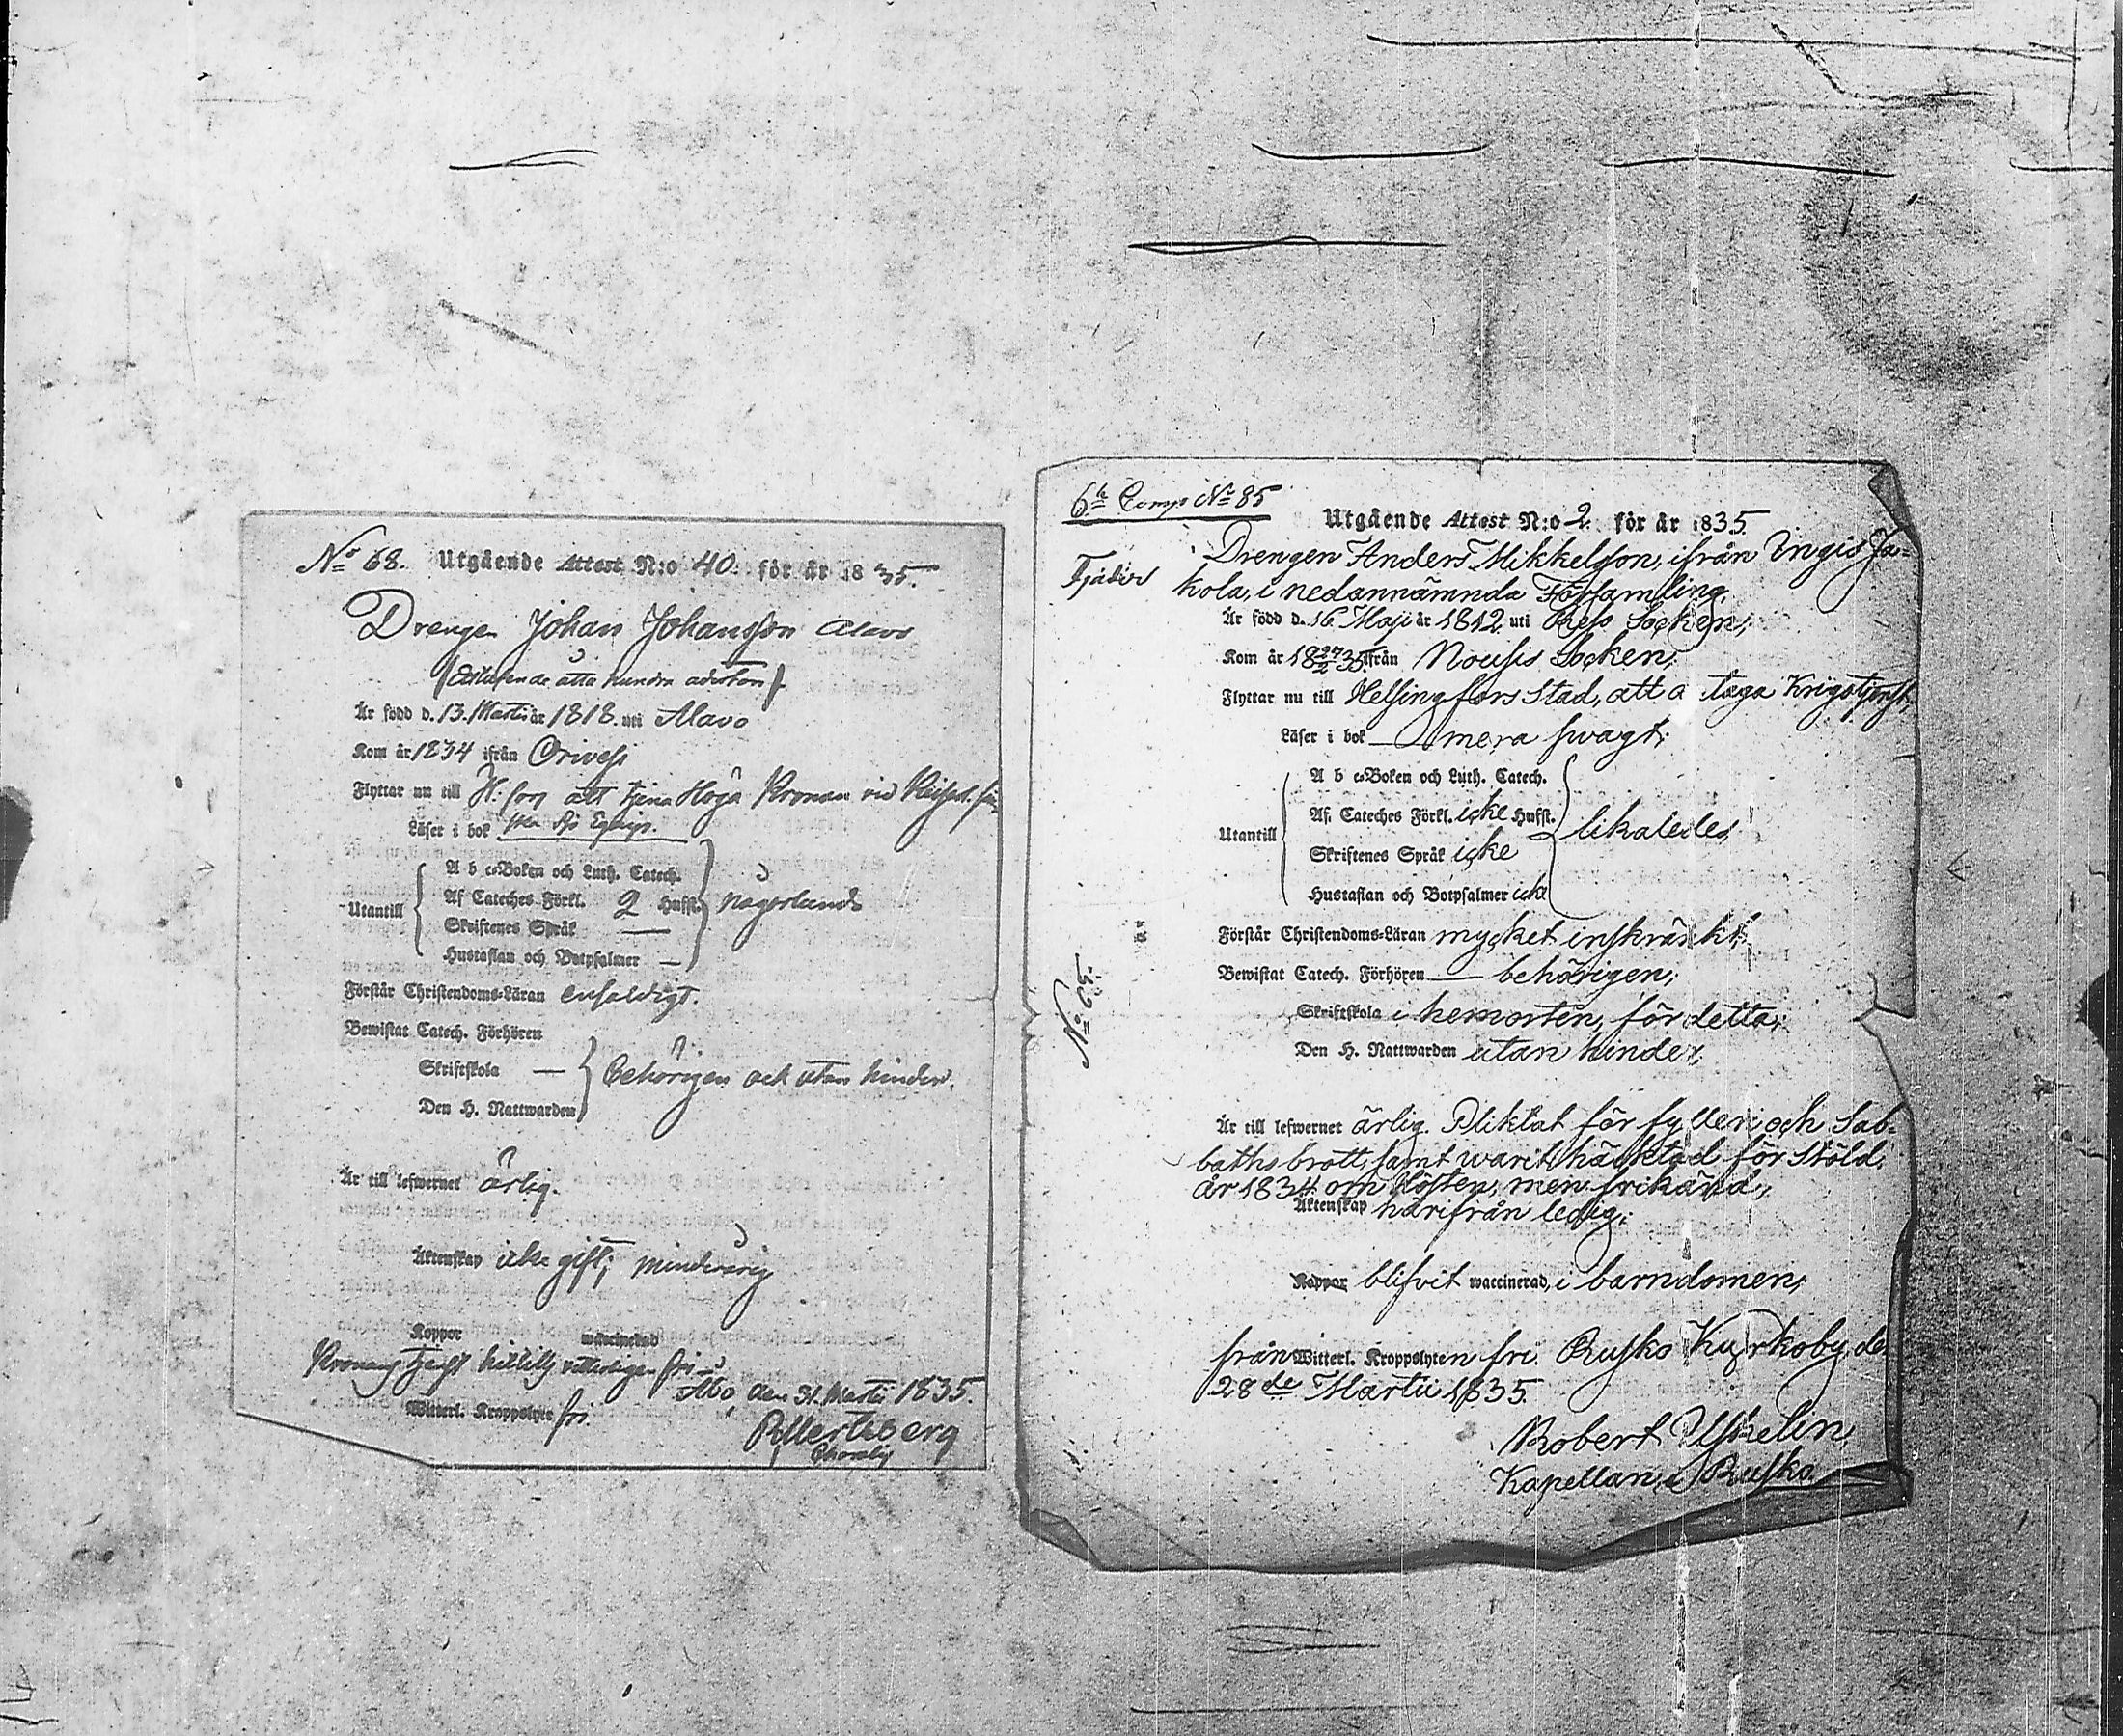 No 68. Utgående Attest N:o 40. för år 1835.
Drengen Johan Johansson Alavo
(Ettusende åtta hundra aderton)
Är född d. 13. Martii år 1818. uti Alavo
Kom år 1834 ifrån Orivesi
Flyttar nu till H:fors att tjena Höga Kronan vid
Läser i bok Sjö Equip.
A b c-Boken och Luth. Catech.
Utantill Af Cateches Förkl. 2 Hufst. någorlunda
Skriftenes Språk —
Hustaflan och Botpsalmer —
Förstår Christendoms-Läran enfaldigt.
Bewistat Catech. Förhören
Skriftskola — behörigen och utan hinder.
Den H. Nattwarden
Är till lefwernet ärlig.
Äktenskap icke gift; minderårig
Koppor waccinerad
Kronans tjenst hittills fri
Åbo, den 31. Martii 1835.
Witterl. Kroppslyte fri.
6te Comp No 85
Utgående Attest N:o 2 för år 1835.
Drengen Anders Mikkelsson, ifrån Ja-
kola, i nedannämnda Församling,
Är född d. 16 Maji år 1812 uti Socken;
Kom år 18 27/2 35 ifrån Nousis Socken;
Flyttar nu till Helsingfors Stad, att taga Krigstjenst;
Läser i bok — mera swagt;
A b c-Boken och Luth. Catech.
Af Cateches Förkl. icke Hufst.
Utantill likaledes
Skriftenes Språk icke
Hustaflan och Botpsalmer icke
Förstår Christendoms-Läran mycket inskränkt;
Bewistat Catech. Förhören — behörigen;
No 65.
Skriftskola i hemorten, för detta;
Den H. Nattwarden utan hinder;
Är till lefwernet ärlig. Pliktat för fylleri och Sab-
bathsbrott, samt warit häktad för Stöld,
år 1834 om Hösten, men frikänd;
Äktenskap härifrån ledig;
Koppor blifvit waccinerad, i barndomen;
från Witterl. Kroppslyten fri. Rusko Kyrkoby, den
28de Martii 1835.
Robert
Kapellan i Rusko.